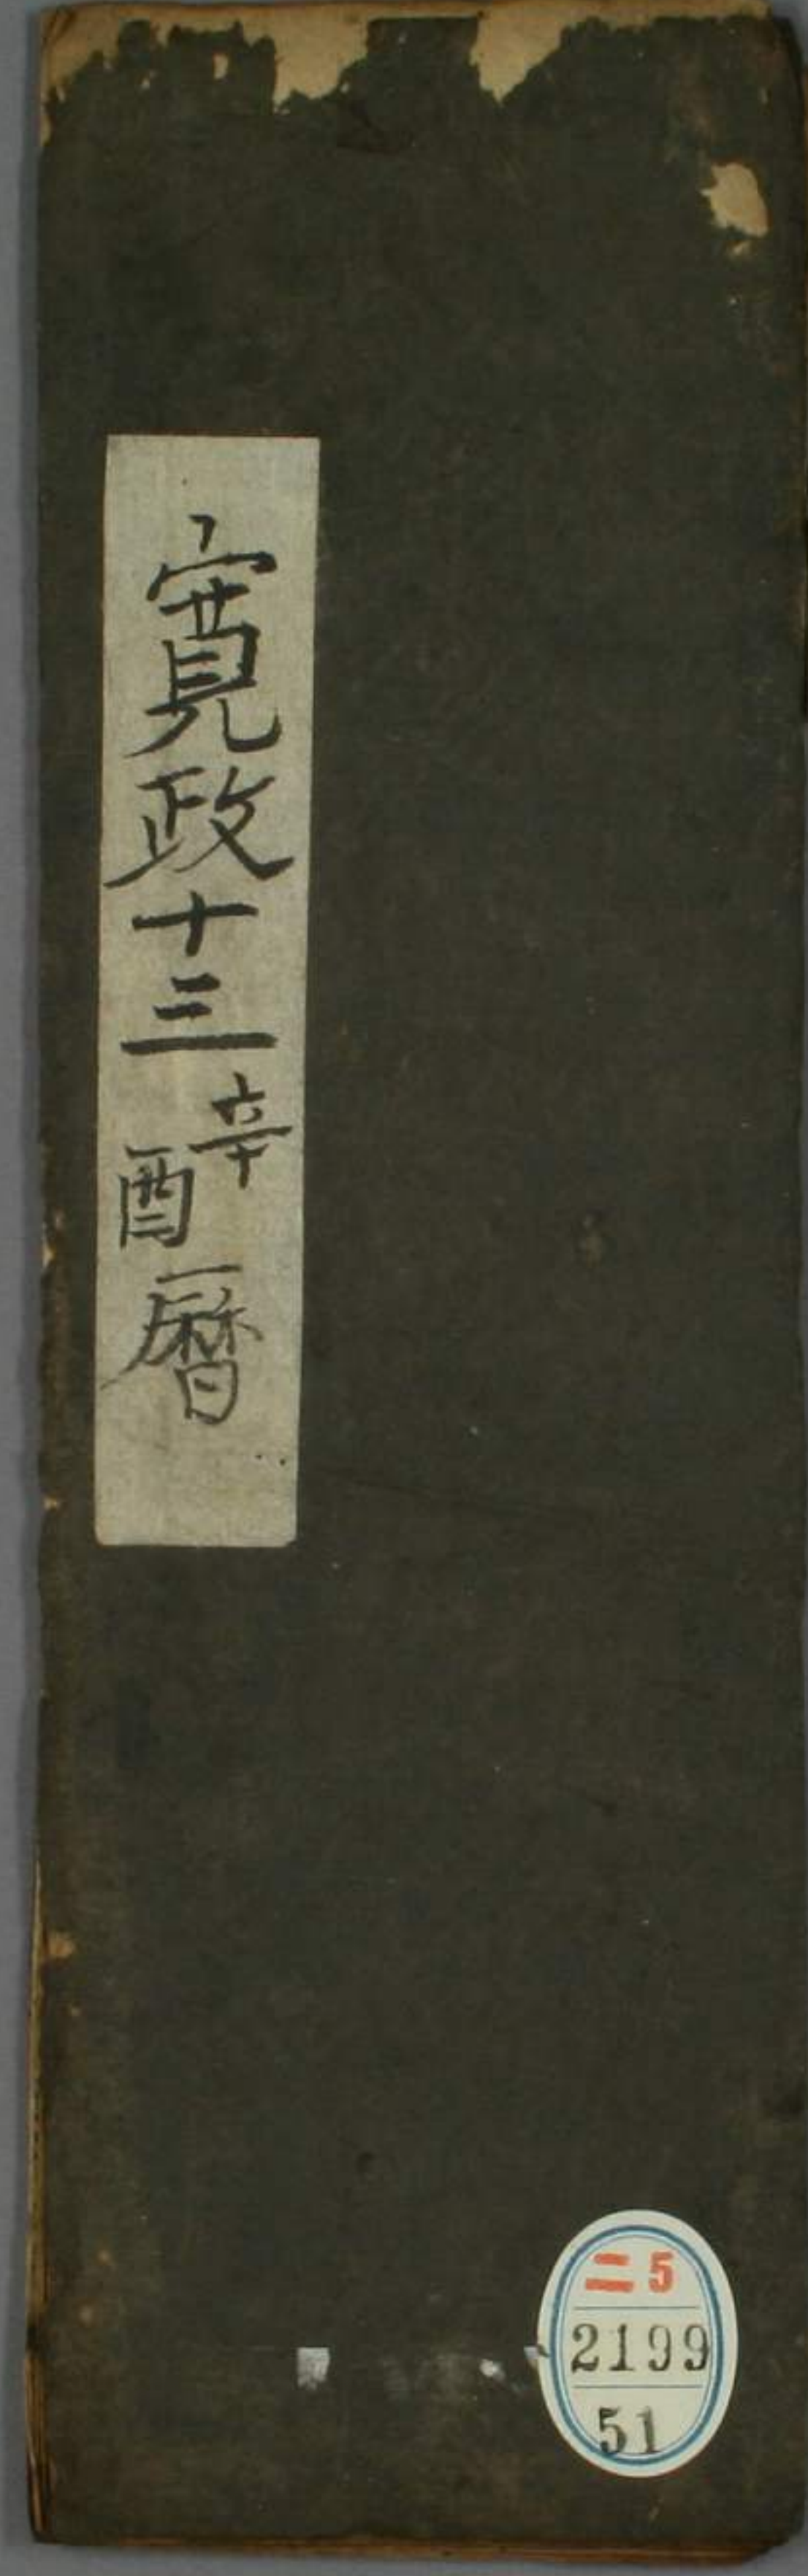 寛政十三辛酉暦
二5
2199
51